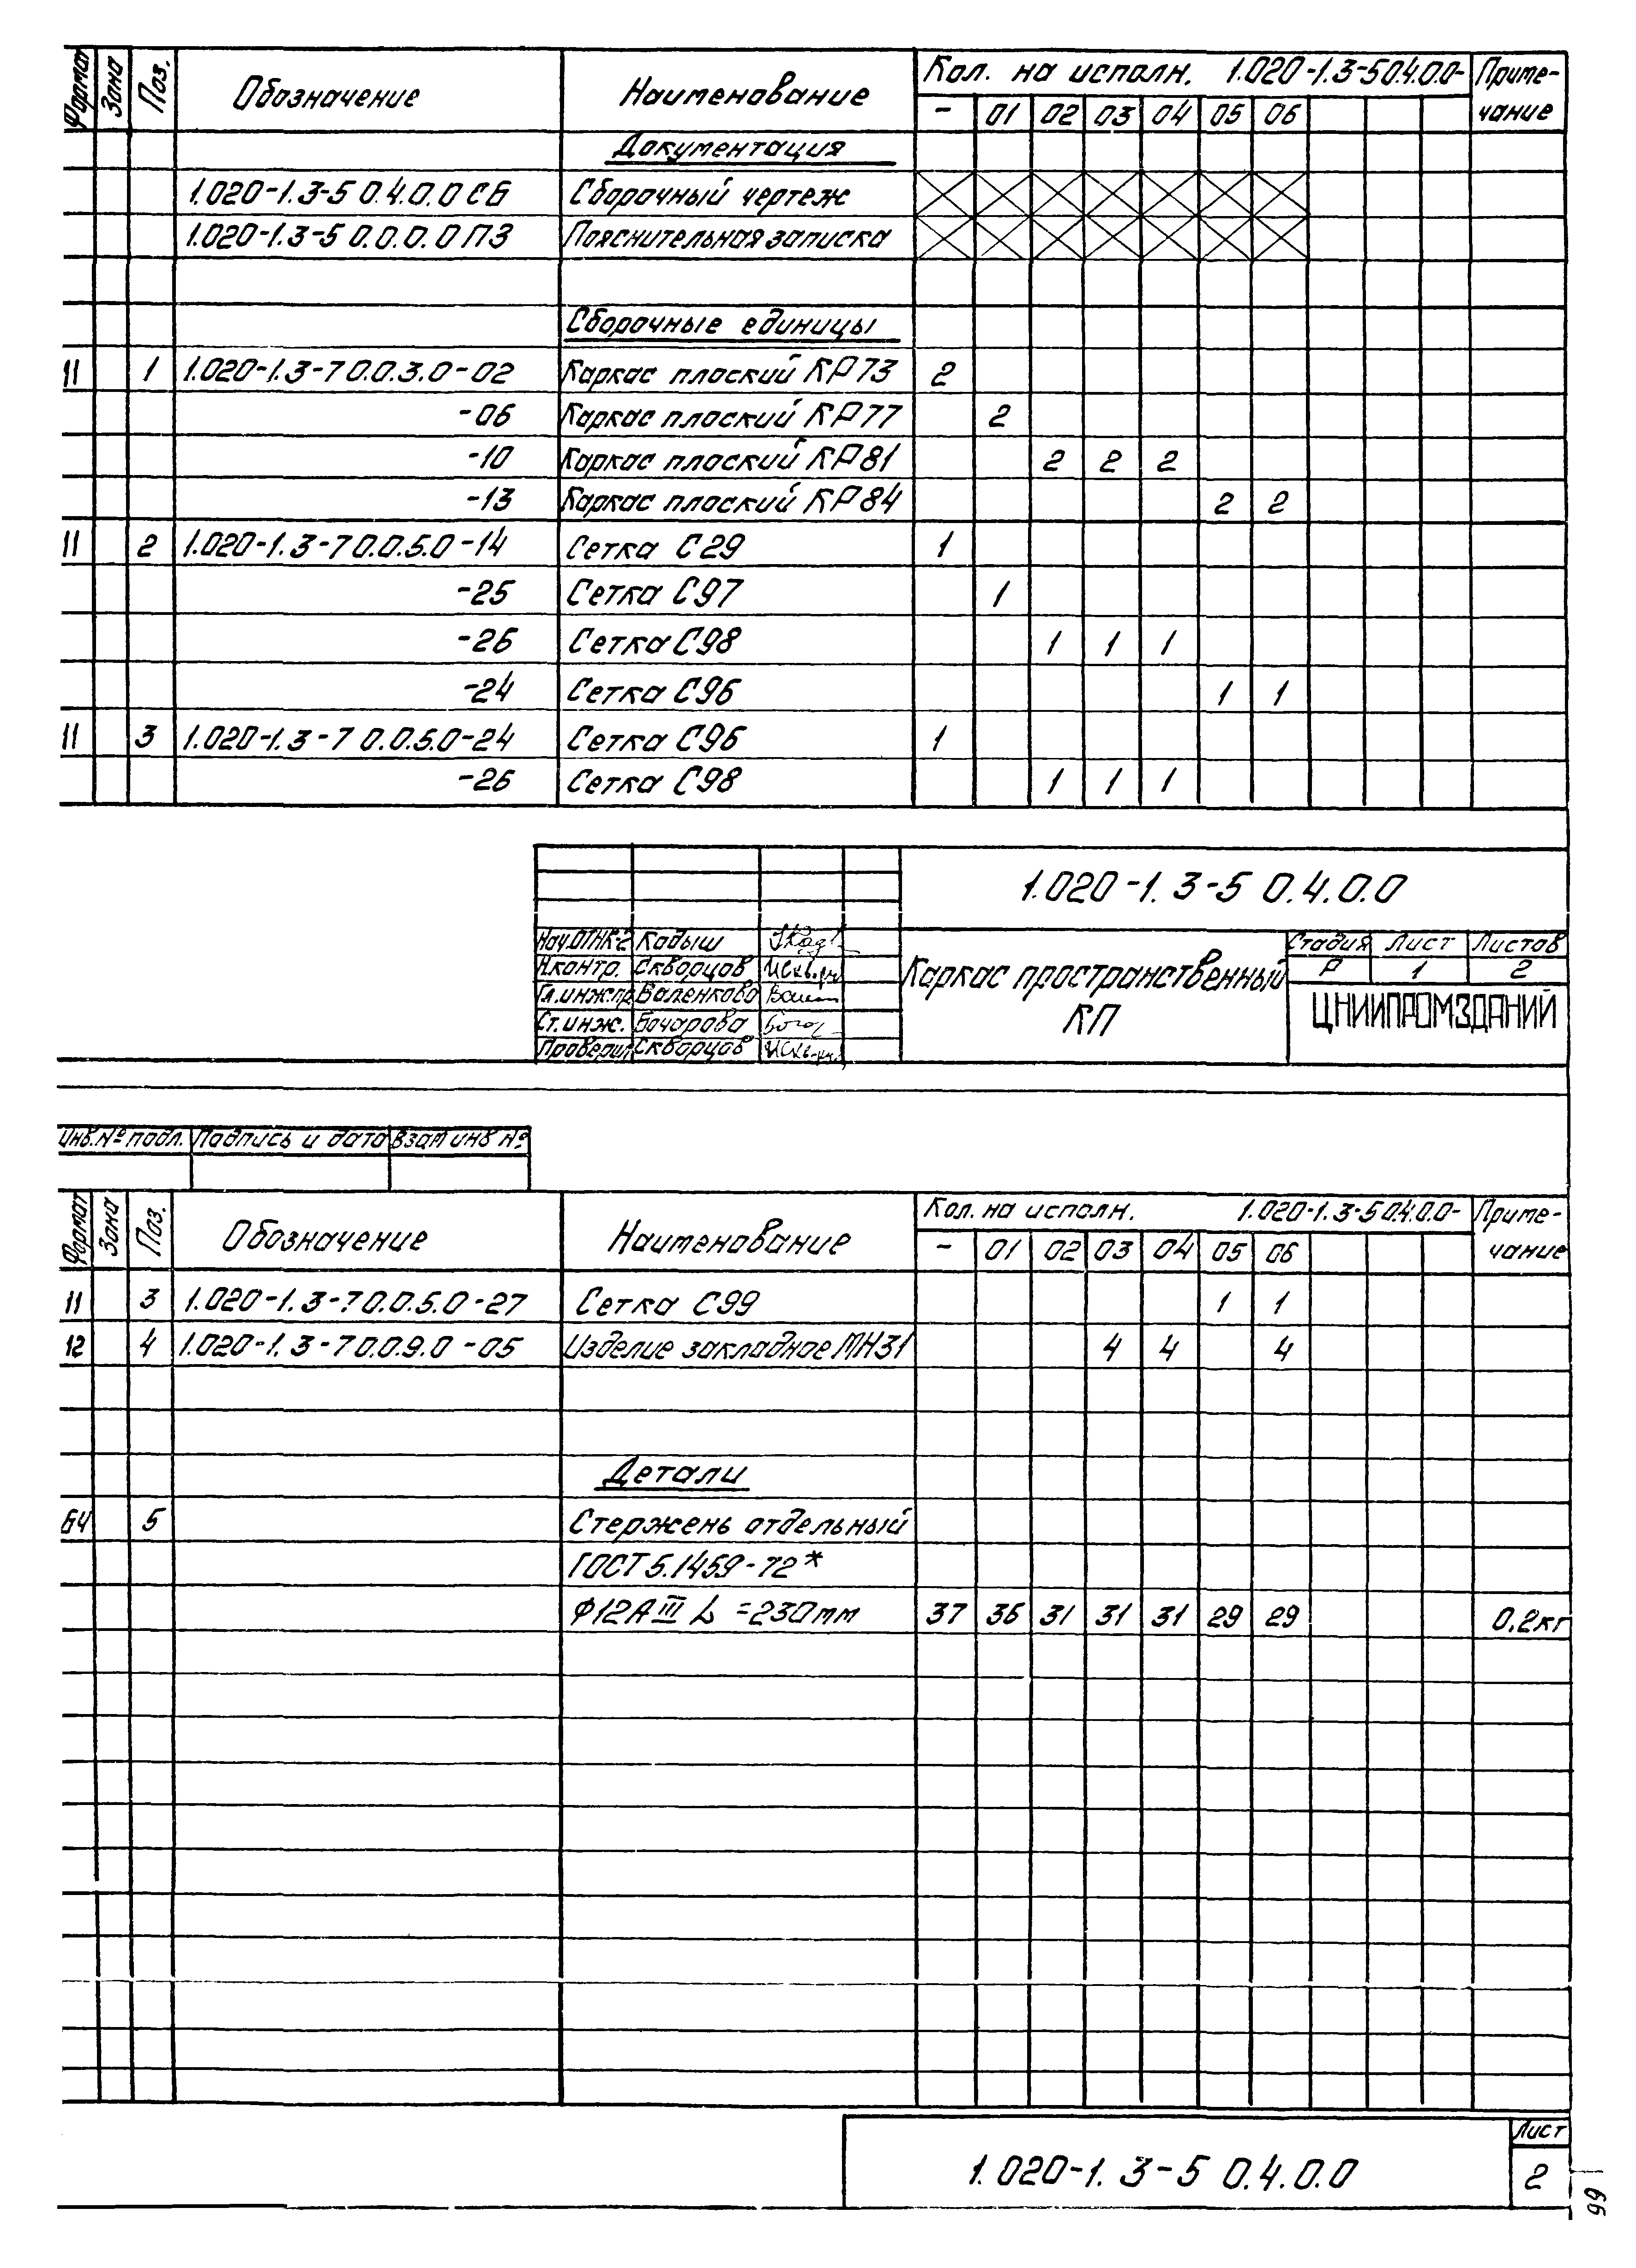 Формат Зона Поз. Обозначение Наименование Кол. на исполн. 1.020-1.3-5 0.4.0.0- Приме-
- 01 02 03 04 05 06 чание
Документация
1.020-1.3-5 0.4.0.0 СБ Сборочный чертеж
1.020-1.3-5 0.0.0.0 ПЗ Пояснительная записка
Сборочные единицы
11 1 1.020-1.3-7 0.0.3.0-02 Каркас плоский КР73 2
-06 Каркас плоский КР77 2
-10 Каркас плоский КР81 2 2 2
-13 Каркас плоский КР84 2 2
11 2 1.020-1.3-7 0.0.5.0-14 Сетка С29 1
-25 Сетка С97 1
-26 Сетка С98 1 1 1
-24 Сетка С96 1 1
11 3 1.020-1.3-7 0.0.5.0-24 Сетка С96 1
-26 Сетка С98 1 1 1
1.020-1.3-5 0.4.0.0
Нач.ОТНК-2 Кодыш
Н.контр. Скворцов
Гл.инж.пр Валенкова
Ст.инж. Бочарова
Проверил Скворцов
Каркас пространственный
КП
Стадия Лист Листов
Р 1 2
ЦНИИПРОМЗДАНИЙ
Инв.№ подл. Подпись и дата Взам инв №
Формат Зона Поз. Обозначение Наименование Кол. на исполн. 1.020-1.3-5 0.4.0.0- Приме-
- 01 02 03 04 05 06 чание
11 3 1.020-1.3-7 0.0.5.0-27 Сетка С99 1 1
12 4 1.020-1.3-7 0.0.9.0-05 Изделие закладное МН31 4 4 4
Детали
БЧ 5 Стержень отдельный
ГОСТ 5.1459-72*
Ф12АIII L=230мм 37 36 31 31 31 29 29 0.2кг
1.020-1.3-5 0.4.0.0
Лист
2
66